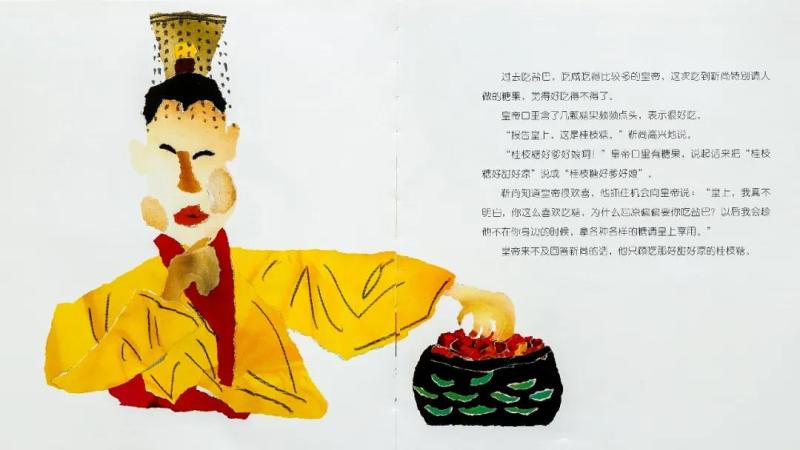 过去吃盐巴，吃咸吃得比较多的皇帝，这次吃到靳尚特别请人
做的糖果，觉得好吃得不得了。
皇帝口里含了几颗糖果频频点头，表示很好吃。
“报告皇上，这是桂枝糖。”靳尚高兴地说。
“桂枝糖好爹好娘啊！”皇帝口里有糖果，说起话来把“桂枝
糖好甜好凉”说成“桂枝糖好爹好娘”。
靳尚知道皇帝很欢喜，他抓住机会向皇帝说：“皇上，我真不
明白，你这么喜欢吃糖，为什么屈原偏偏要你吃盐巴？以后我会趁
他不在你身边的时候，拿各种各样的糖请皇上享用。”
皇帝来不及回答靳尚的话，他只顾吃那好甜好凉的桂枝糖。